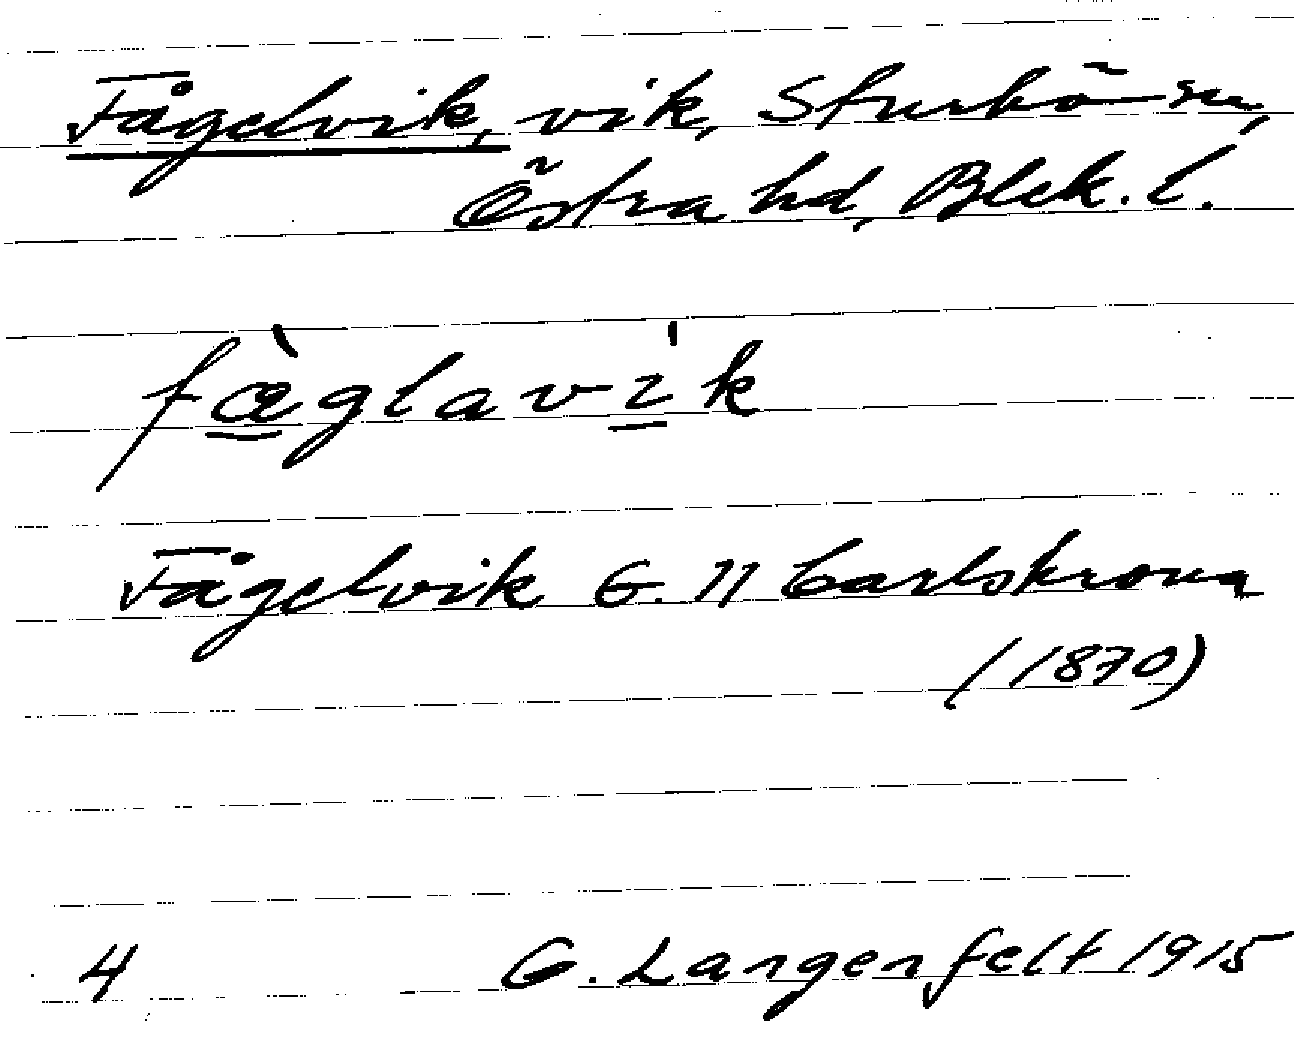 Fågelvik, vik, Sturkö sn,
Östra hd, Blek. l.
fæ̀glavi̍k
Fågelvik G. 11 Carlskrona
(1870)
4 G. Langenfelt 1915